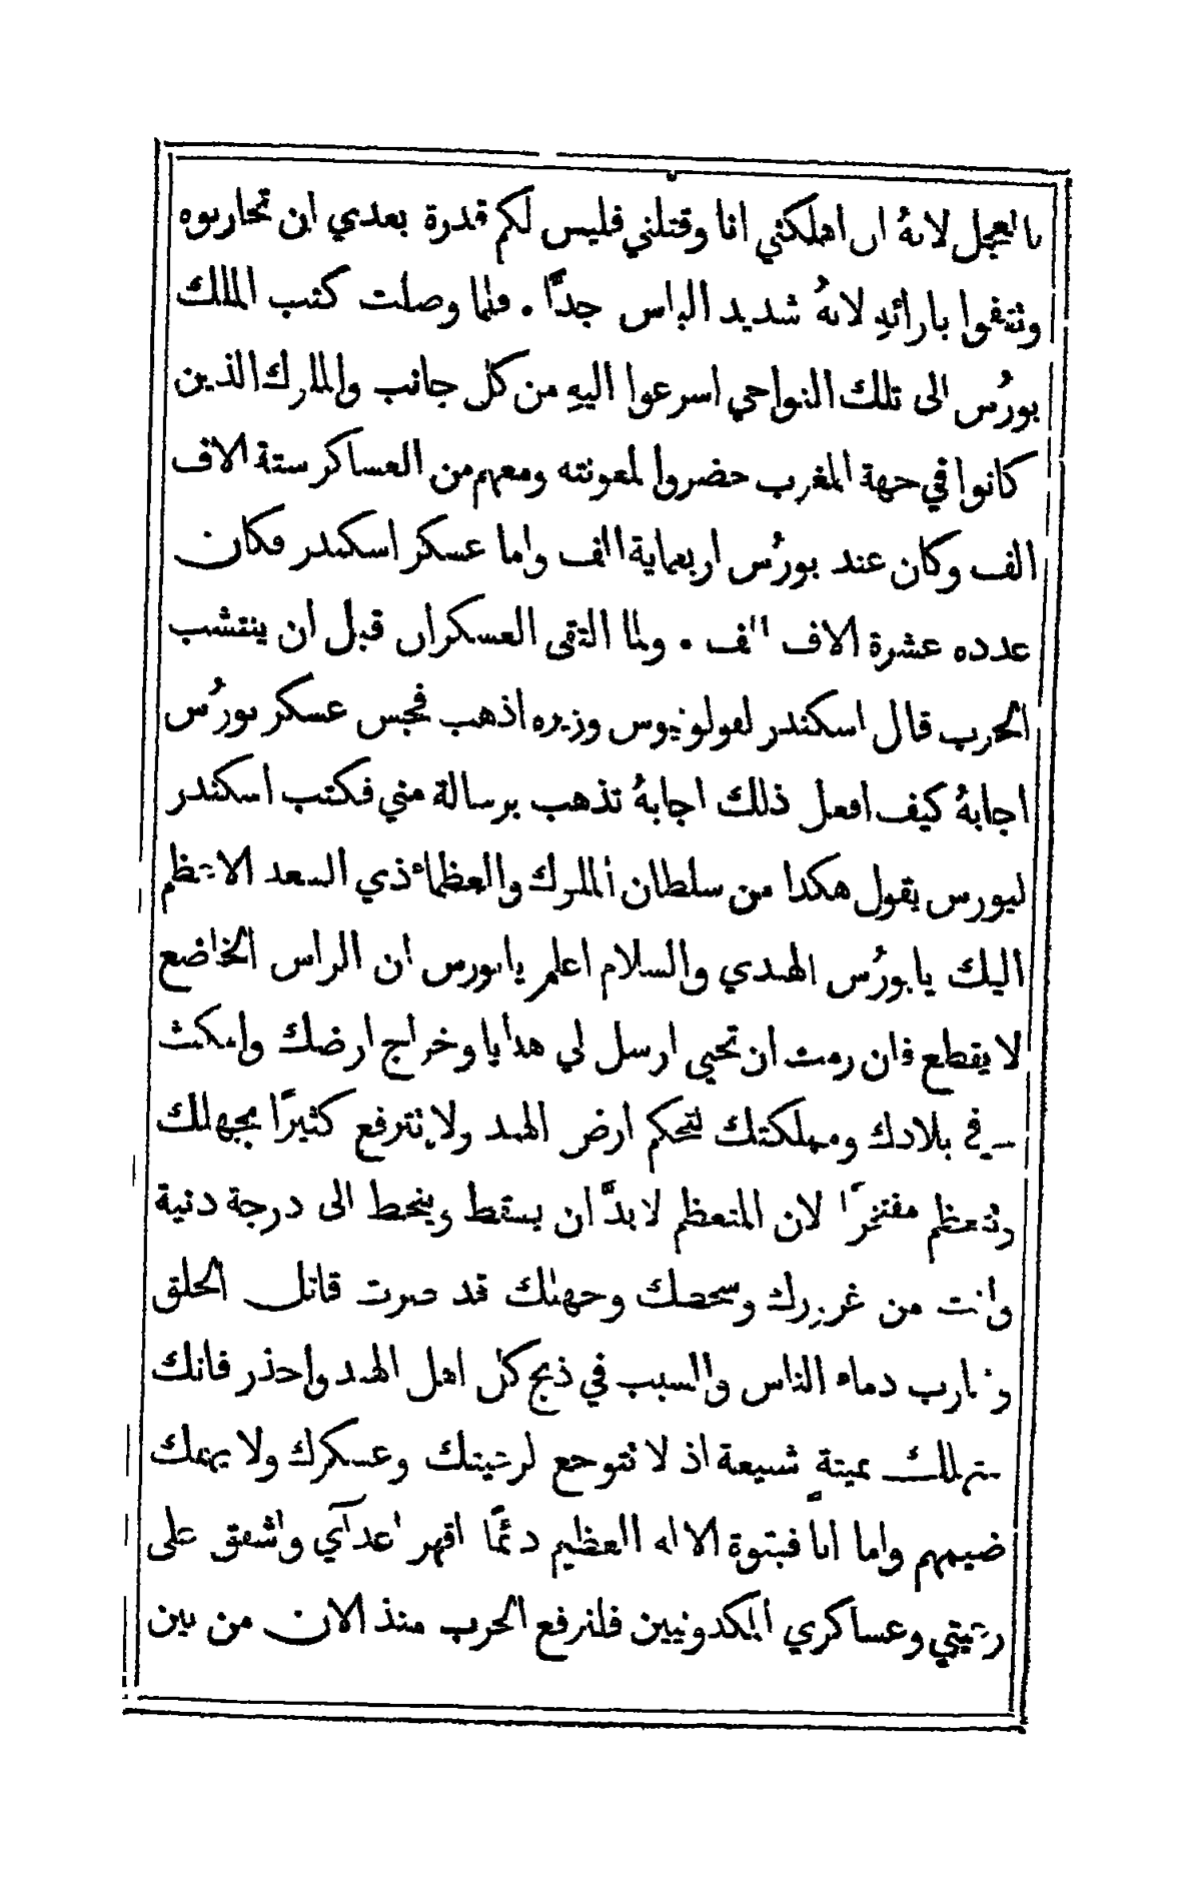 بالعجل لانهُ ان اهلكني انا وقتلني فليس لكم قدرة بعدي ان تحاربوه
وتتفوا بارائهِ لانهُ شديد الباس جدًّا . فلما وصلت كتب الملك
بورُس الى تلك النواحي اسرعوا اليهِ من كل جانب والملوك الذين
كانوا في جهة المغرب حضروا لمعونته ومعهم من العساكر ستة الاف
الف وكان عند بورُس اربعماية الف واما عسكر اسكندر فكان
عدده عشرة الاف الف . ولما التقى العسكران قبل ان ينتشب
الحرب قال اسكندر لفولونيوس وزيره اذهب فجس عسكر بورُس
اجابهُ كيف افعل ذلك اجابهُ تذهب برسالة مني فكتب اسكندر
لبورس يقول هكذا من سلطان الملوك والعظماء ذي السعد الاعظم
اليك يا بورُس الهندي والسلام اعلم يا بورس ان الراس الخاضع
لا يقطع فان رمت ان تحيى ارسل لي هدايا وخراج ارضك وامكث
في بلادك ومملكتك لتحكم ارض الهند ولا تترفع كثيرًا بجهلك
وتتعظم مفتخرًا لان المتعظم لا بدَّ ان يسقط وينحط الى درجة دنية
وانت من غرورك وجهلك قد صرت قاتل الخلق
وشارب دماء الناس والسبب في ذبح كل اهل الهند واحذر فانك
ستهلك بميتةٍ شنيعة اذ لا تتوجع لرعيتك وعسكرك ولا يهمك
ضيمهم واما انا فبقوة الاله العظيم دئمًا اقهر اعدآي واشفق على
رعيتي وعساكري المكدونيين فلنرفع الحرب منذ الان من بين